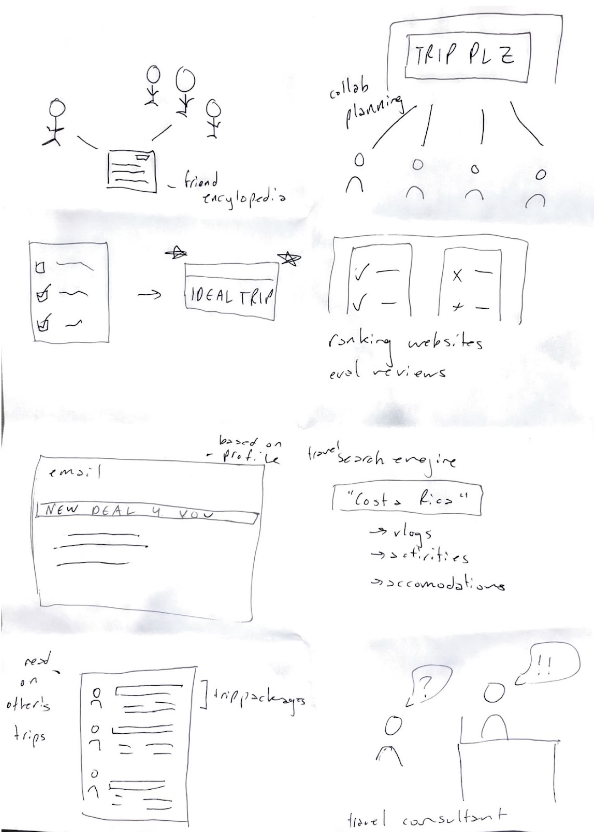 friend
encylopedia
TRIP PLZ
collab
planning
IDEAL TRIP
ranking websites
eval reviews
based on
profile
email
NEW DEAL 4 YOU
travel search engine
"Costa Rica"
→ vlogs
→ activities
→ accomodations
read
on
other's
trips
trip packages
?
!!
travel consultant